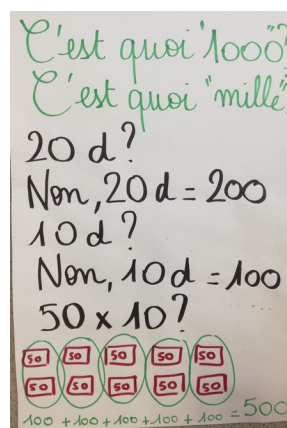 C'est quoi "1000"?
C'est quoi "mille"
20 d?
Non, 20 d = 200
10 d?
Non, 10 d = 100
50 x 10?
50 50 50 50 50
50 50 50 50 50
100 + 100 + 100 + 100 + 100 = 500